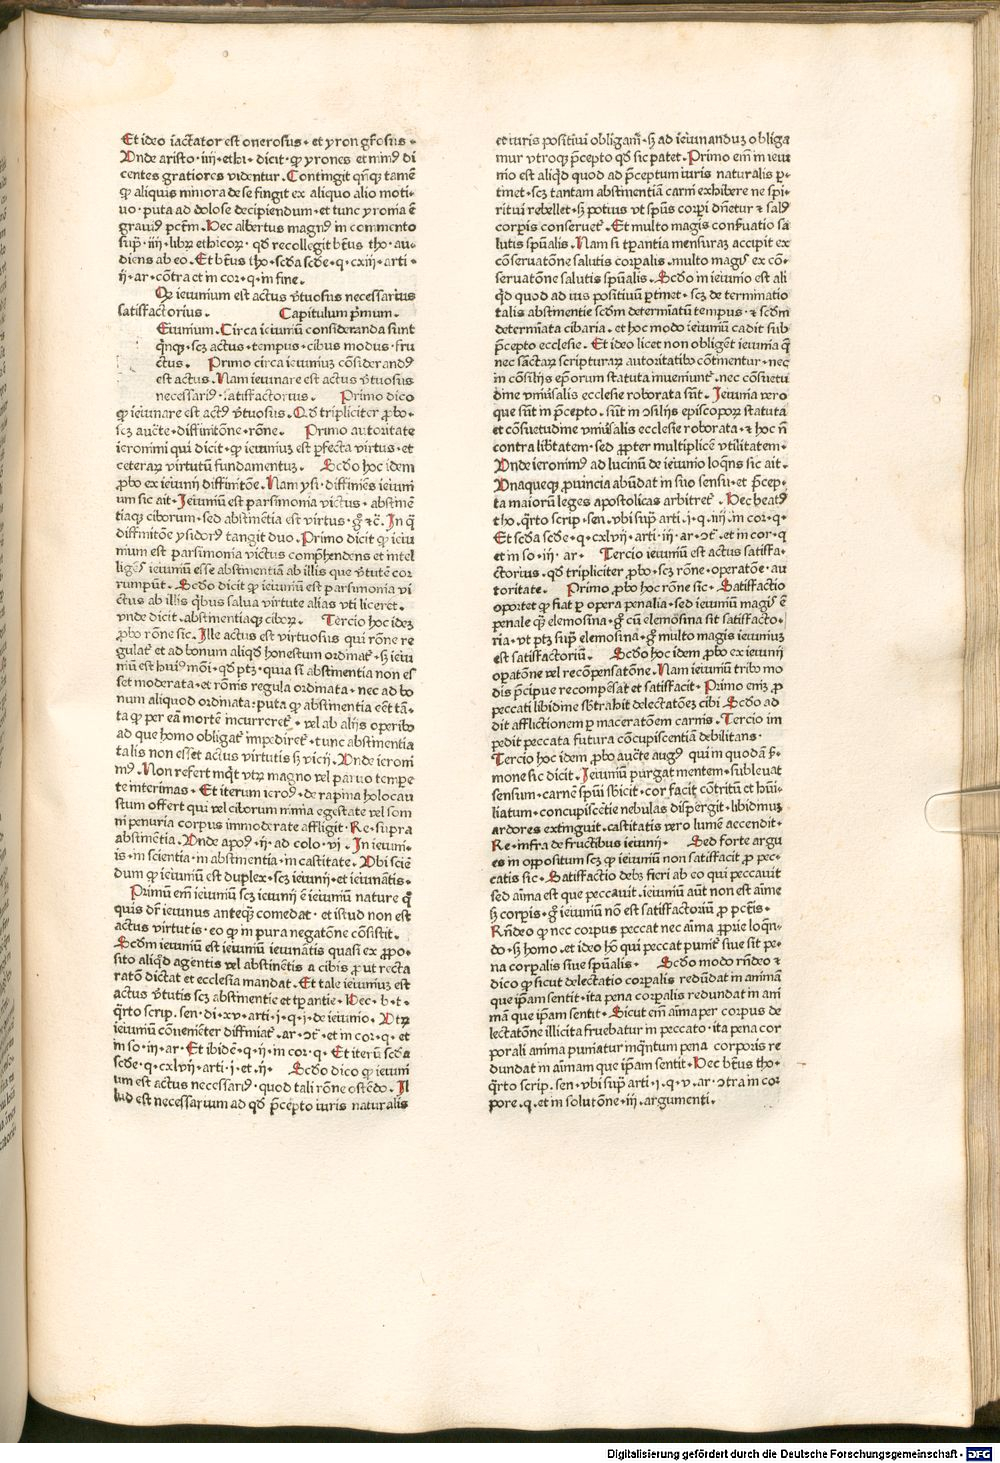 Et ideo iactator est onerosus · et yron gr̄osus ·
Vnde aristo · iiij · ethi · dicit · ꝙ yrones et nimꝰ di
centes gratiores videntur . Contingit qn̄qꝫ tamē
ꝙ aliquis minora de se fingit ex aliquo alio moti-
uo · puta ad dolose decipiendum · et tunc yronia ē
grauiꝰ pctm̄ . Hec albertus magnꝰ in commento
suꝑ · iiij · libꝝ ethicoꝝ · qd̄ recollegit bt̄us tho · au-
diens ab eo . Et bt̄us tho · scd̄a scd̄e · q · cxiij · arti ·
ij · ar · cōtra et in cor · q · in fine .
Qꝙ ieiunium est actus v̄tuosus necessarius
satisfactorius . Capitulum p̄mum .
Eiunium . Circa ieiuniū consideranda sunt
qn̄qꝫ · scꝫ actus · tempus · cibus modus · fru
ctus . Primo circa ieiuniuꝫ cōsiderandꝰ
est actus . Nam ieiunare est actus v̄tuosus
necessariꝰ · satisfactorius . Primo dico
ꝙ ieiunare est actꝰ v̄tuosus . Qd̄ tripliciter ꝓbo ·
scꝫ aucte · diffinitōne · rōne . Primo autoritate
ieronimi qui dicit · ꝙ ieiuniuꝫ est ꝑfecta virtus · et
ceteraꝝ virtutū fundamentuꝫ . Scd̄o hoc idem
ꝓbo ex ieiunij diffinitōe . Nam ysi · diffiniēs ieiuni
um sic ait · Ieiuniū est parsimonia victus · abstinē
tiaqꝫ ciborum · sed abstinētia est virtus · gͦ ⁊c̄ . In q̄
diffinitōe ysidorꝰ tangit duo . Primo dicit ꝙ ieiu
nium est parsimonia victus comp̄hendens et intel
ligēs ieiuniū esse abstinentiā ab illis que v̄tutē cor
rumpūt . Scd̄o dicit ꝙ ieiuniū est parsimonia vi
ctus ab illis qͥbus salua virtute alias vti liceret .
vnde dicit · abstinentiaqꝫ ciboꝝ . Tercio hoc ideꝫ
ꝓbo rōne sic . Ille actus est virtuosus qui rōne re
gulat̄ et ad bonum aliqd̄ honestum ordinat̄ · sꝫ ieiu
niū est huiꝰmōi · qd̄ ptꝫ · quia si abstinentia non es
set moderata · et rōnis regula ordinata · nec ad bo
num aliquod ordinata · puta ꝙ abstinētia eēt tā-
ta ꝙ per eā mortē incurreret̄ · vel ab alijs oꝑeribꝰ
ad que homo obligat̄ impediret̄ · tunc abstinentia
talis non esset actus virtutis sꝫ vicij . Vnde ieroni
mꝰ . Non refert mqͥt vtꝝ magno vel paruo tempe
te interimas · Et iterum ieroꝰ · de rapina holocau
stum offert qui vel ciborum nimia egestate vel som
ni penuria corpus immoderate affligit · Re · supra
abstinētia . Vnde apoꝰ · ij · ad colo · vj · In ieiuni-
is · in scientia · in abstinentia · in castitate . Vbi sciē
dum ꝙ ieiuniū est duplex · scꝫ ieiunij · et ieiunātis ·
Primū em̄ ieiuniū scꝫ ieiunij ē ieiuniū nature qͦ
quis dr̄ ieiunus anteqꝫ comedat · et istud non est
actus virtutis · eo ꝙ in pura negatōne cōsistit .
Scd̄m ieiuniū est ieiuniū ieiunātis quasi ex ꝓpo-
sito aliqd̄ agentis vel abstinētis a cibis ꝓut recta
ratō dictat et ecclesia mandat . Et tale ieiuniuꝫ est
actus v̄tutis scꝫ abstinentie et tꝑantie · Hec · b · t ·
qͣrto scrip · sen · di · xv · arti · j · q · j · de ieiunio . Vtꝝ
ieiuniū cōuenienter diffiniat̄ . ar · ɔt̄ · et in cor · q · et
in so · iij · ar · Et ibidē · q · ij · in cor · q · Et iteꝝ scd̄a
scd̄e · q · cxlvij · arti · j · et · ij · Scd̄o dico ꝙ ieiuni
um est actus necessariꝰ · quod tali rōne ostēdo . Il
lud est necessarium ad qd̄ p̄cepto iuris naturalis
et iuris positiui obligam̄ · sꝫ ad ieiunanduꝫ obliga
mur vtroqꝫ p̄cepto qd̄ sic patet . Primo em̄ in ieiu
nio est aliqd̄ quod ad p̄ceptum iuris naturalis ꝑ-
tinet · scꝫ tantam abstinentiā carni exhibere ne spi-
ritui rebellet · sꝫ potius vt spūs corꝑi dn̄etur ⁊ salꝰ
corꝑis conseruet̄ · Et multo magis conẜuatio sa
lutis spūalis . Nam si tꝑantia mensuraꝫ accipit ex
cōseruatōne salutis corꝑalis · multo magꝭ ex cō-
seruatōne salutis spūalis . Scd̄o in ieiunio est ali
qd̄ quod ad ius positiuū ꝑtinet · scꝫ de terminatio
talis abstinentie scd̄m determīatū tempus · ⁊ scd̄m
determīata cibaria . et hoc modo ieiuniū cadit sub
p̄cepto ecclesie . Et ideo licet non obligēt ieiunia q̄
nec sāctaꝝ scripturaꝝ autoritatibꝰ cōtinentur · nec
in cōsilijs eꝑoꝝ statuta inueniunt̄ . nec cōsuetu
dine vniūsalis ecclesie roborata sūt . Ieiunia vero
que sūt in p̄cepto . sūt in ɔsilijs episcopoꝝ statuta
et cōsuetudine vniūsalis ecclesie roborata · ⁊ hoc nō
contra lib̄tatem · sed ꝓpter multiplicē vtilitatem ·
Vnde ieronimꝰ ad lucinū de ieiunio loqn̄s sic ait .
Vnaqueqꝫ ꝓuincia abūdat in suo sensu · et p̄cep-
ta maioꝝ leges apostolicas arbitret̄ . Hec beatꝰ
tho · qͣrto scrip · sen · vbi suꝑ arti · j · q · iiij · in cor · q ·
Et scd̄a scd̄e · q · cxlvij · arti · iij · ar · ɔt̄ . et in cor · q
et in so · iij · ar · Tercio ieiuniū est actus satisfa-
ctorius . qd̄ tripliciter ꝓbo · scꝫ rōne · operatōe · au
toritate . Primo ꝓbo hoc rōne sic · Satisfactio
oportet ꝙ fiat ꝑ opera penalia · sed ieiuniū magꝭ ē
penale qꝫ elemosina · gͦ cū elemosina sit satisfacto-
ria · vt ptꝫ suꝑ elemosina · gͦ multo magis ieiuniuꝫ
est satisfactoriū . Scd̄o hoc idem ꝓbo ex ieiunij
oꝑatōne vel recōpensatōne . Nam ieiuniū tribꝰ mo
dis p̄cipue recompēsat et satisfacit · Primo em̄ ꝓ
peccati libidine sb̄trahit delectatōeꝫ cibi Scd̄o ad
dit afflictionem ꝑ maceratōem carnis . Tercio im
pedit peccata futura cōcupiscentiā debilitans ·
Tercio hoc idem ꝓbo aucte augꝰ qui in quodā ẜ-
mone sic dicit . Ieiuniū purgat mentem · subleuat
sensum · carnē spūi sb̄icit · cor facit cōtritū et hūi-
liatum · concupiscētie nebulas dispergit · libidinuꝫ
ardores extinguit . castitatis vero lumē accendit ·
Re · infra de fructibus ieiunij · Sed forte argu
es in oppositum scꝫ ꝙ ieiuniū non satisfacit ꝓ pec-
catis sic · Satisfactio debꝫ fieri ab eo qui peccauit
sed aīma est que peccauit . ieiuniū aūt non est aīme
sꝫ corꝑis · gͦ ieiuniū nō est satisfactoriū ꝓ pctīs .
Rn̄deo ꝙ nec corpus peccat nec aīma ꝓprie loqn̄-
do · sꝫ homo . et ideo hō qui peccat punit̄ siue sit pe-
na corꝑalis siue spūalis · Scd̄o modo rn̄deo ⁊
dico ꝙ sicut delectatio corꝑalis redūdat in animā
que ip̄am sentit · ita pena corꝑalis redundat in ani
mā que ip̄am sentit · Sicut em̄ aīma per corpus de
lectatōne illicita fruebatur in peccato · ita pena cor
porali anima puniatur inqͣntum pena corporis re
dundat in aīmam que ip̄am sentit · Hec bt̄us tho ·
qͣrto scrip · sen · vbi suꝑ arti · j · q · v · ar · ɔtra in cor
pore · q · et in solutōne · iij · argumenti ·
Digitalisierung gefördert durch die Deutsche Forschungsgemeinschaft - DFG